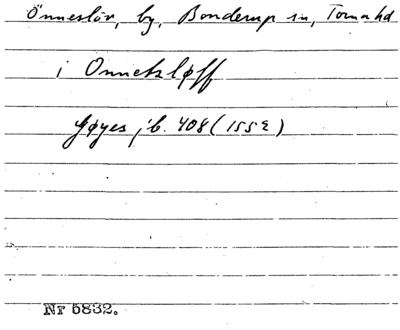 Önneslöv, by, Bonderup sn, Torna hd
i Onnetzløff
Gøyes jb. 408 (1552)
Nr 5832.